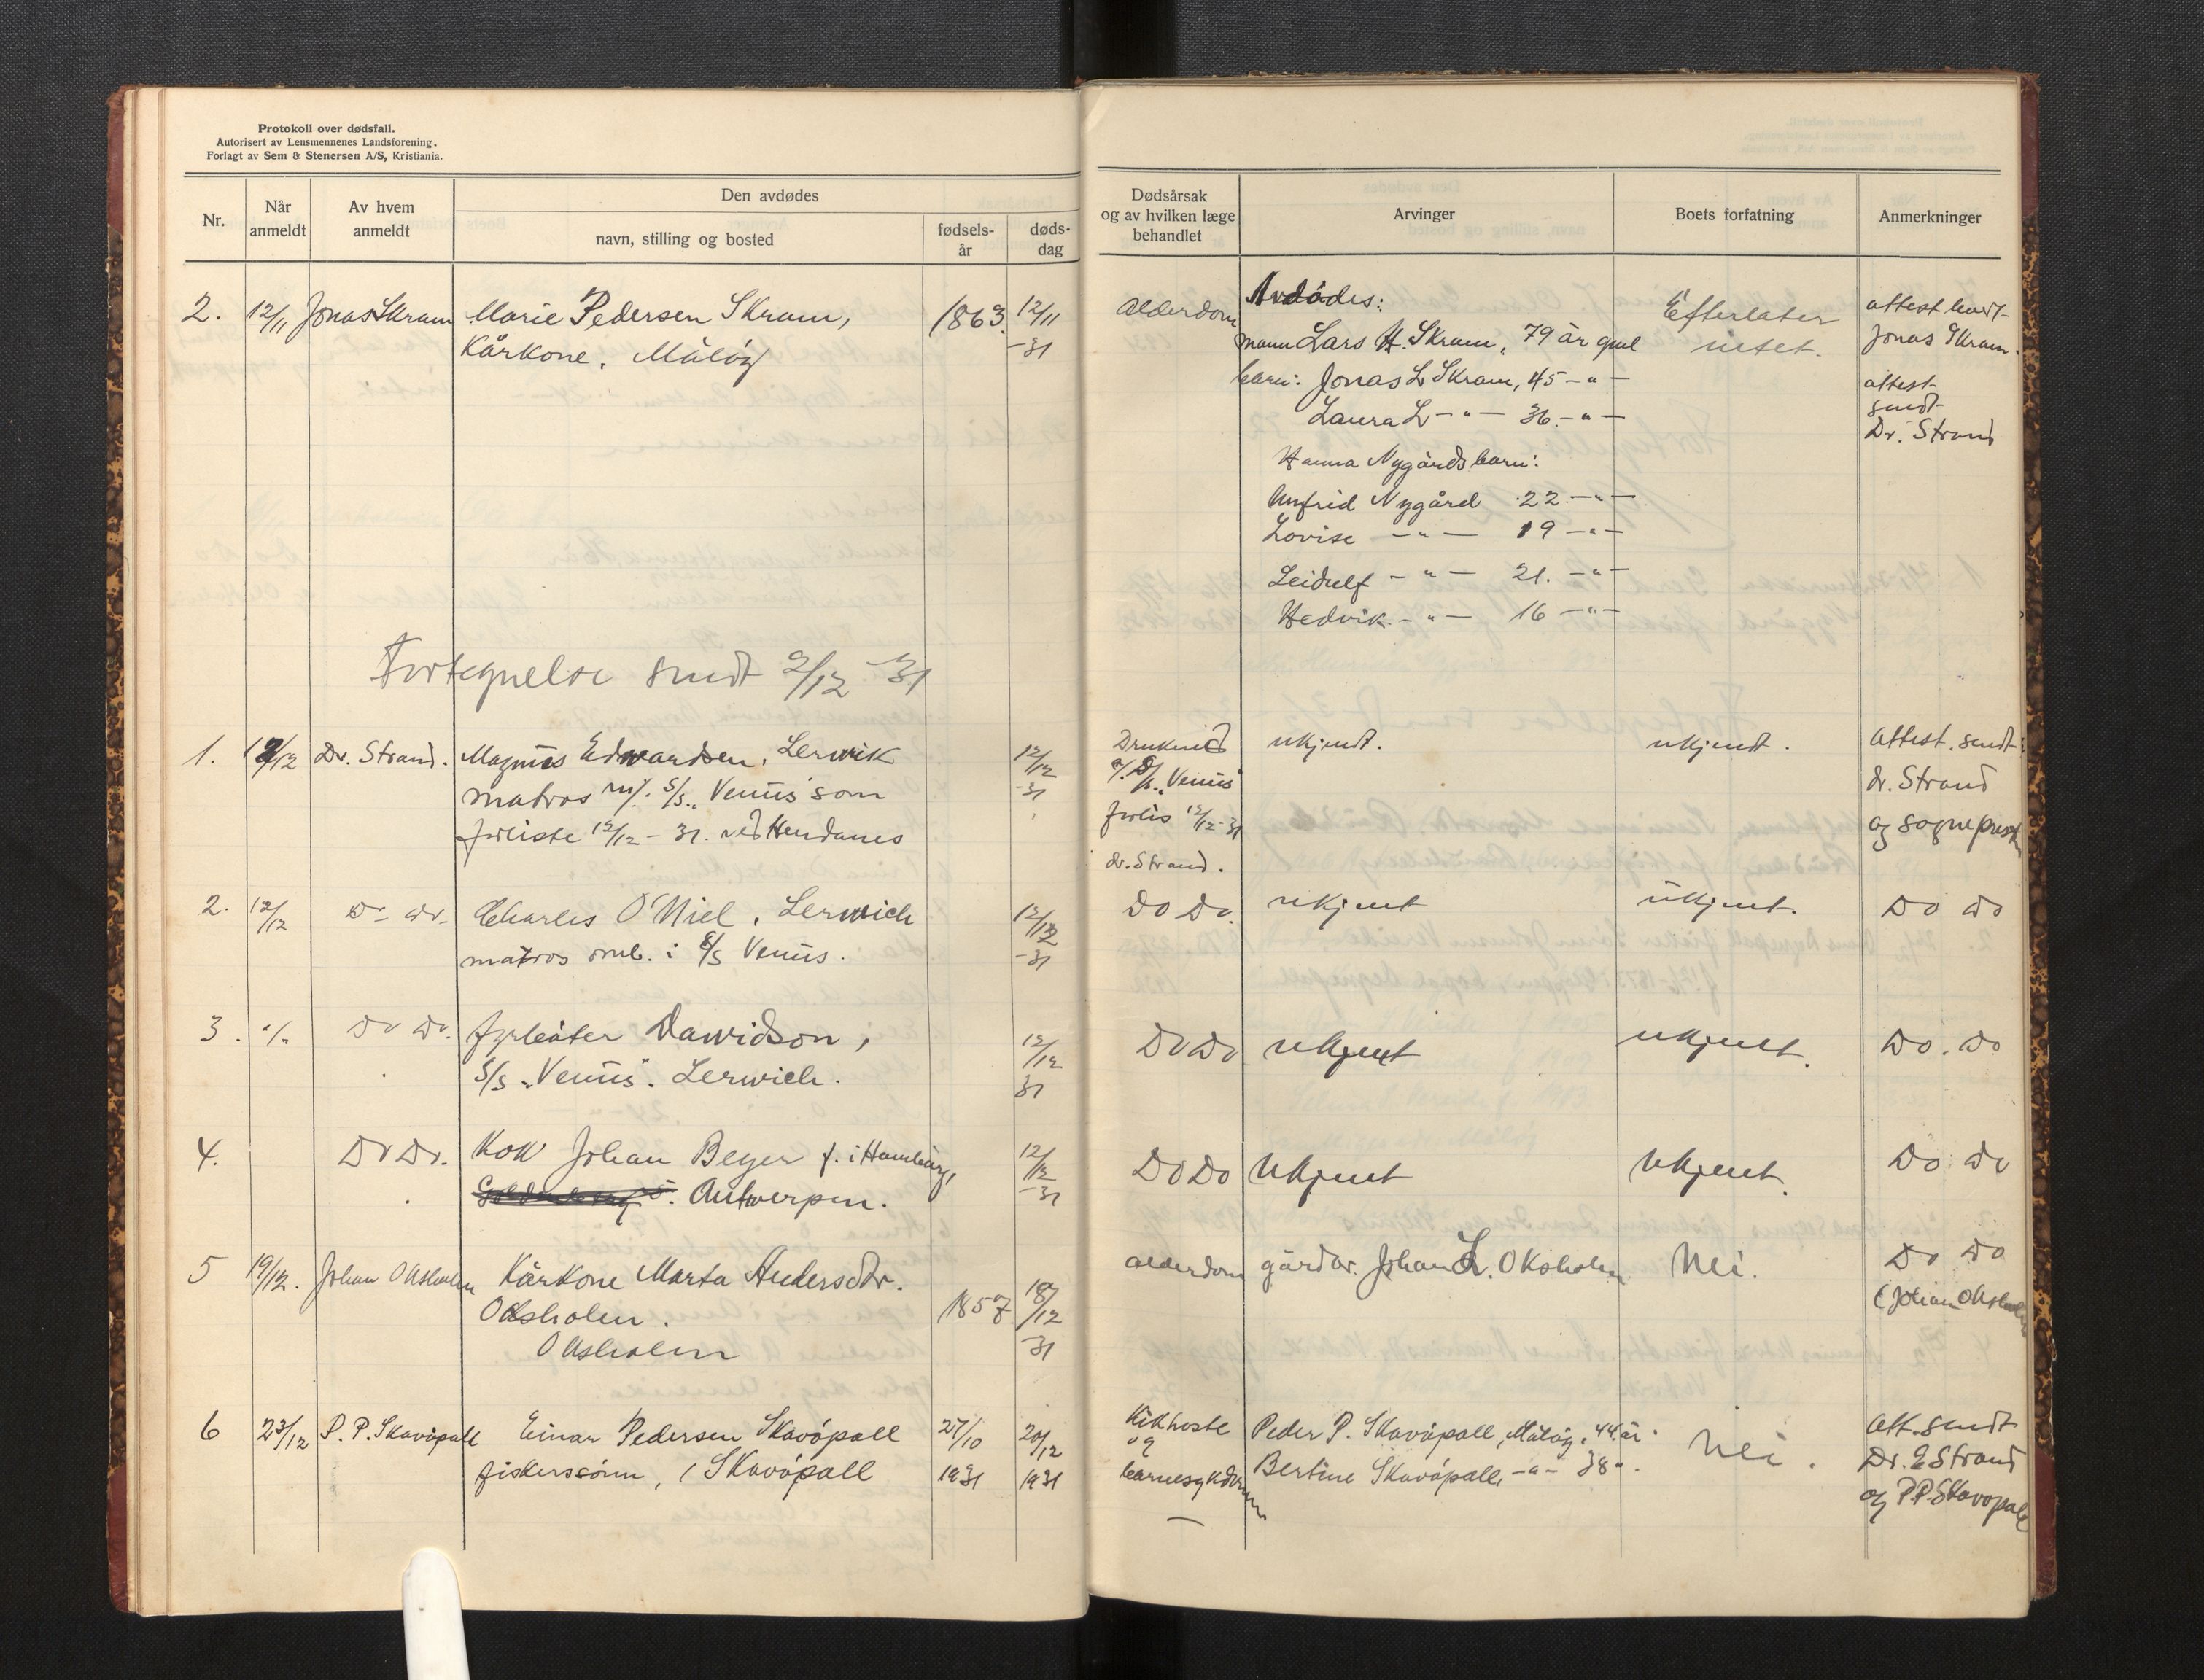 Protokoll over dødsfall.
Autorisert av Lensmennenes Landsforening.
Forlagt av Sem & Stenersen A/S, Kristiania.
Nr.
Når anmeldt
Av hvem anmeldt
Den avdødes
navn, stilling og bosted
fødsels-
år
døds-
dag
Dødsårsak
og av hvilken læge
behandlet
Arvinger
Boets forfatning
Anmerkninger
2. 12/11 Jonas Skram Marie Pedersen Skram, 1863. 12/11
Kårkone, Måløy -31
Alderdom
Avdødes:
mann Lars H. Skram, 79 år gml
barn: Jonas L Skram, 45 -"-
Laura L -"- 36. -"-
Hanna Nygårds barn:
Unfrid Nygård 22. -"-
Lovise -"- 19 -"-
Leidulf -"- 21. -"-
Hedvik. -"- 16 -"-
Efterlater
intet.
attest levert
Jonas Skram.
attest
sendt
Dr. Strand
Fortegnelse sendt 2/12 -31
1. 12/12 Dr. Strand. Magnus Edwardsen, Lerwik 12/12
matros m/. S/s. „Venus" som -31
forliste 12/12 - 31. ved Hendanes
Drukned
v/. D/s. „Venus"
forlis 12/12-31
dr. Strand.
ukjendt.
ukjendt.
Attest. sendt
dr. Strand
og sogneprest
2. 12/12 Do do. Charles O'Niel, Lerwich 12/12
matros omb. i S/S Venus. -31
Do Do.
ukjent
ukjent.
Do do
3. "/" Do Do. fyrbøter Dawidson, 12/12
S/s „Venus". Lerwich. 31
Do Do
ukjent
ukjent.
Do. do
4. Do Do. Kok Johan Beyer f. i Hamburg, 12/12
Antwerpen. -31
Do Do
Ukjent
Ukjent.
Do do
5 19/12. Johan Oksholm Kårkone Marta Andersdtr.
Oksholm. 1857 18/12
Oksholm -31
alderdom
gårdbr. Johan L. Oksholm
Nei.
Do do
(Johan Oksholm
6 23/12 P. P. Skavøpoll Einar Pedersen Skavøpoll 27/10 20/12
fiskerssønn, / Skavøpoll 1931 1931
Kikhoste
og
barnesykdom
Peder P. Skavøpoll, Måløy, 44 år.
Bertine Skavøpoll, -"- 38 ".
Nei.
Att. sendt
Dr. E Strand
og P.P. Skavøpoll